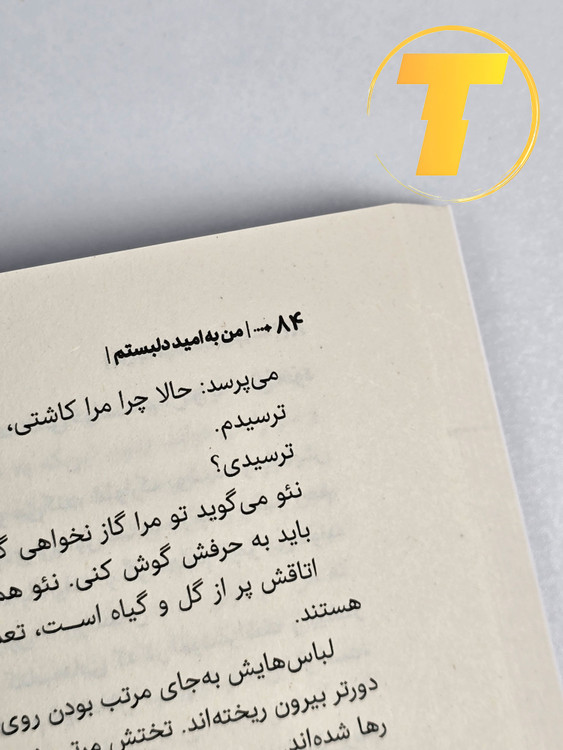 T
۸۴ | من به امید دلبستم |
می‌پرسد: حالا چرا مرا کاشتی،
ترسیدم.
ترسیدی؟
نئو می‌گوید تو مرا گاز نخواهی
باید به حرفش گوش کنی. نئو
اتاقش پر از گل و گیاه است،
هستند.
لباس‌هایش به‌جای مرتب بودن روی
دورتر بیرون ریخته‌اند. تختش
رها شده‌اند.